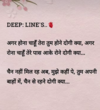 DEEP: LINE'S..🥀
अगर होना चाहूँ तेरा तुम होने दोगी क्या, अगर
रोना चाहूँ तेरे पास आके रोने दोगी क्या...
चैन नहीं मिल रहा अब, मुझे कहीं पे, तुम अपनी
बाहों में, चैन से रहने दोगी क्या...